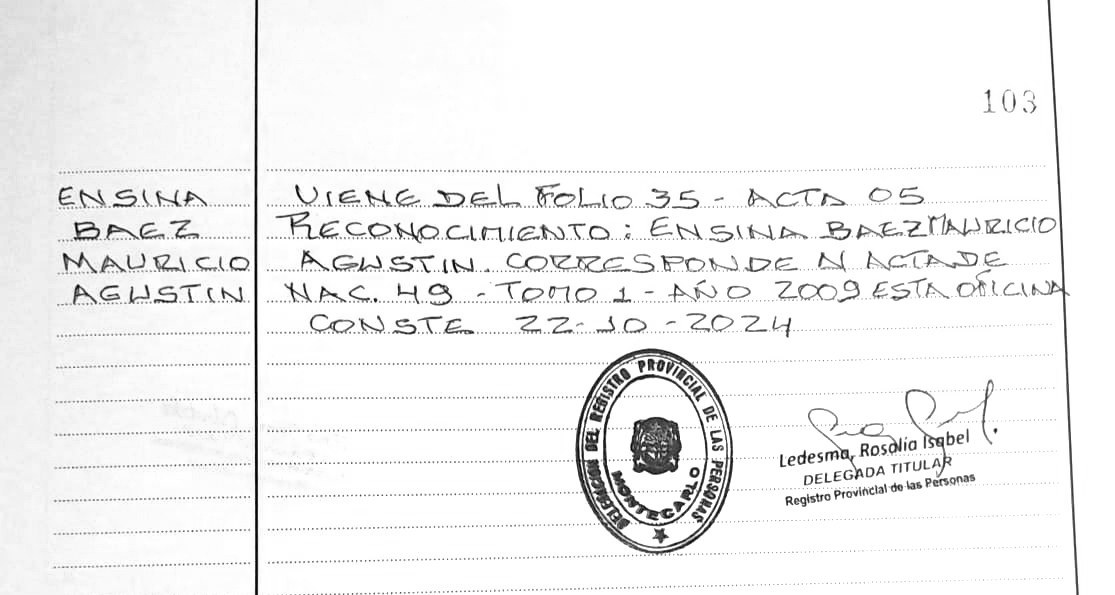 103
ENSINA
BAEZ
MAURICIO
AGUSTIN
VIENE DEL FOLIO 35 - ACTA 05
RECONOCIMIENTO: ENSINA BAEZ MAURICIO
AGUSTIN. CORRESPONDE N ACTA DE
NAC. 49 - TOMO 1 - AÑO 2009 ESTA OFICINA
CONSTE 22-10-2024
DELEGACION DEL REGISTRO PROVINCIAL DE LAS PERSONAS
MONTECARLO
Ledesma, Rosalia Isabel
DELEGADA TITULAR
Registro Provincial de las Personas